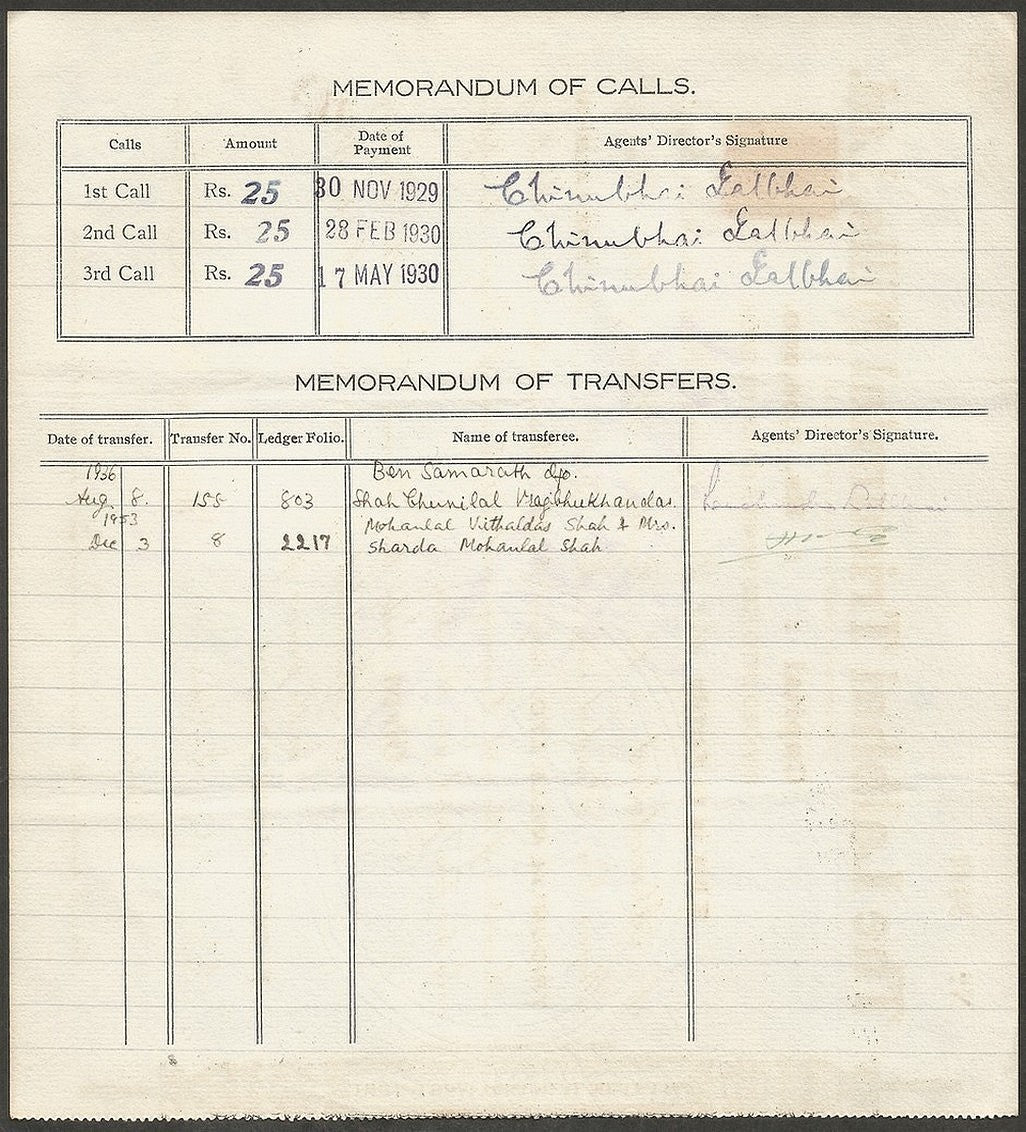 MEMORANDUM OF CALLS.
Calls Amount Date of Payment Agents' Director's Signature
1st Call Rs. 25 30 NOV 1929 Chinubhai Lalbhai
2nd Call Rs. 25 28 FEB 1930 Chinubhai Lalbhai
3rd Call Rs. 25 17 MAY 1930 Chinubhai Lalbhai
MEMORANDUM OF TRANSFERS.
Date of transfer. Transfer No. Ledger Folio. Name of transferee. Agents' Director's Signature.
1936 Ben Samarath
Aug. 8. 155 803 Shah Chunilal Vrajbhukhandas.
1953 Mohanlal Vithaldas Shah & Mrs.
Dec 3 8 2217 Sharda Mohanlal Shah